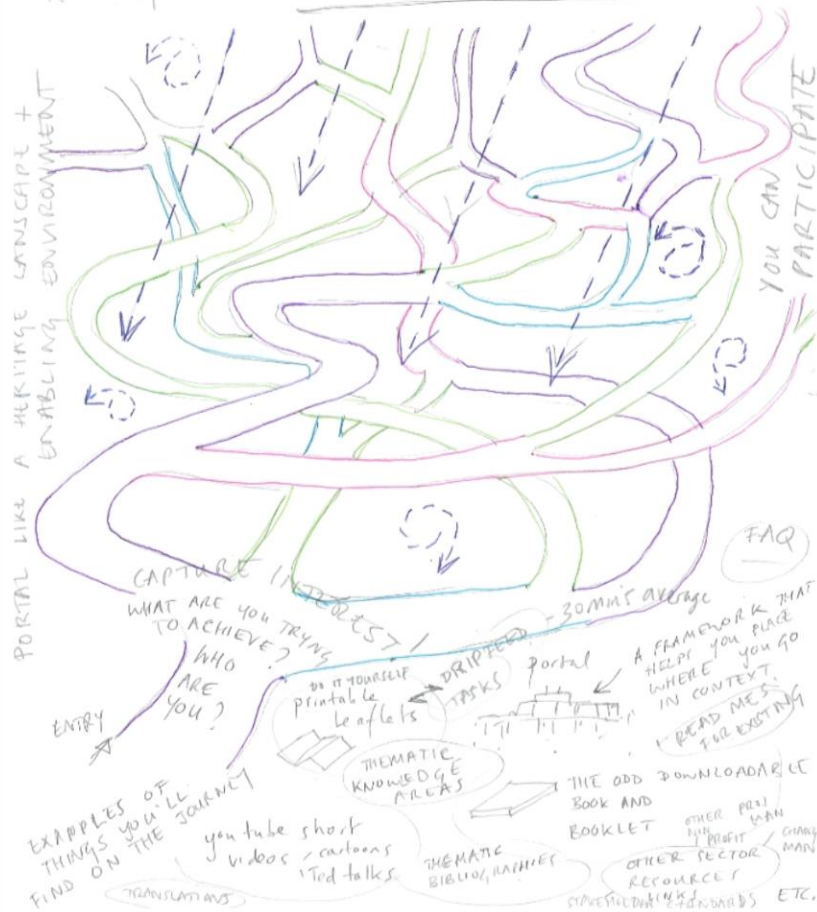 PORTAL LIKE A HERITAGE LANSCAPE +
ENABLING ENVIRONMENT
YOU CAN
PARTICIPATE
CAPTURE INTEREST!
WHAT ARE YOU TRYNG
TO ACHIEVE?
WHO
ARE
YOU?
ENTRY
FAQ
DRIPFEED - 30 Min's average
TASKS
DO IT YOURSELF
printable
leaflets
portal
A FRAMEWORK THAT
HELPS YOU PLACE
WHERE YOU GO
IN CONTEXT.
READ MES.
FOR EXISTING
THEMATIC
KNOWLEDGE
AREAS
THE ODD DOWNLOADABLE
BOOK AND
BOOKLET
EXAMPLES OF
THINGS YOU'LL
FIND ON THE JOURNEY
you tube short
videos, cartoons
Ted talks
TRANSLATIONS
THEMATIC
BIBLIOGRAPHIES
OTHER
MAN
PROFIT
MAN
OTHER SECTOR
RESOURCES
LINKS
STANDARDS ETC.